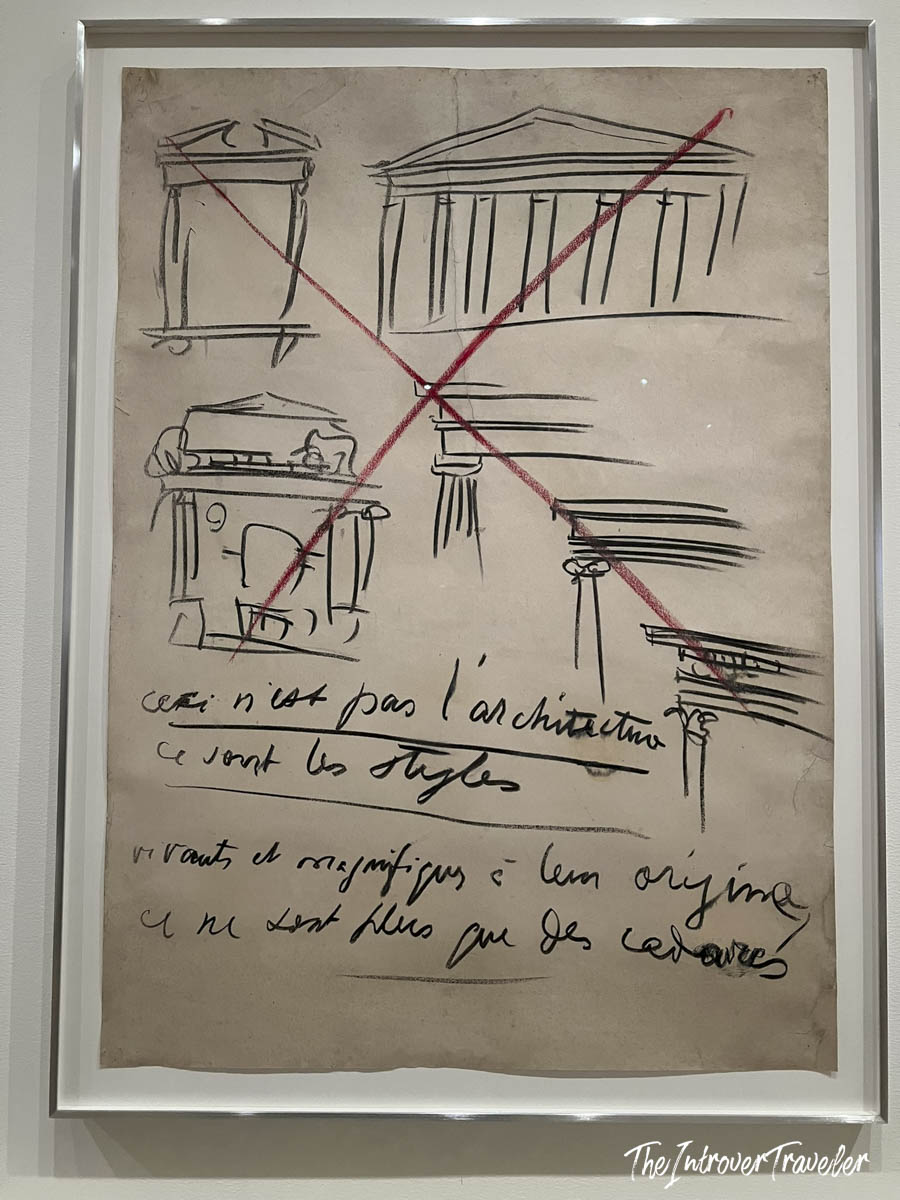 ceci n'est pas l'architecture
ce sont les styles
vivants et magnifiques à leur origine,
ce ne sont plus que des cadavres
TheIntroverTraveler